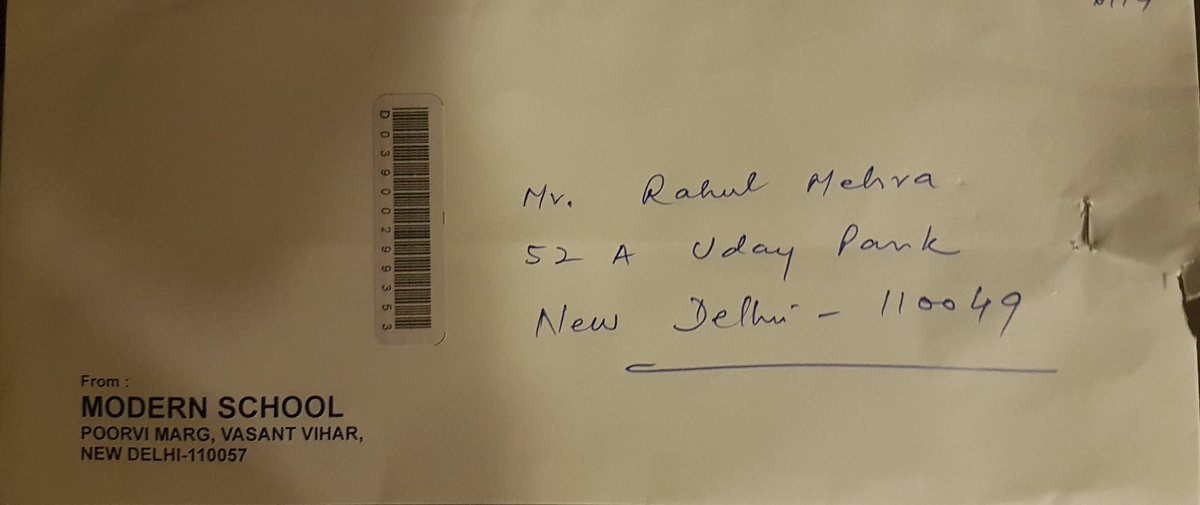 D03900299353
Mr. Rahul Mehra
52 A Uday Park
New Delhi - 110049
From :
MODERN SCHOOL
POORVI MARG, VASANT VIHAR,
NEW DELHI-110057